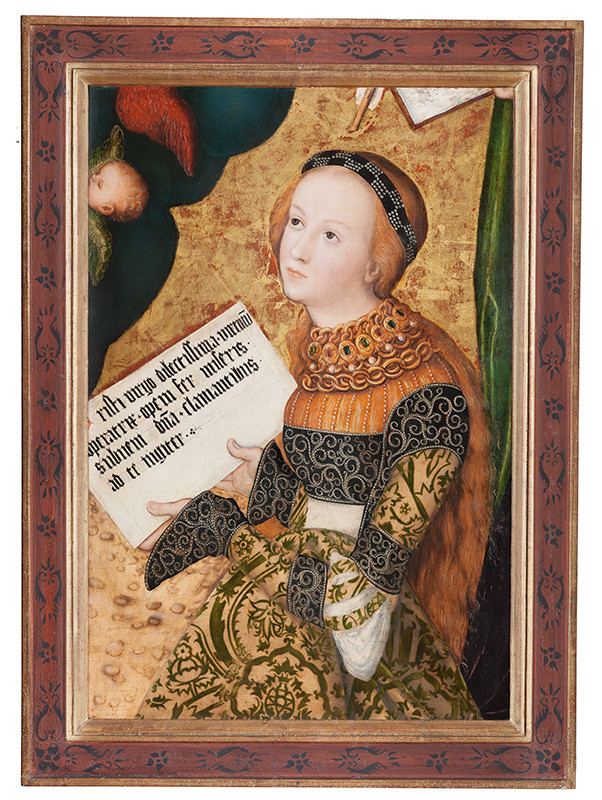 risti virgo dulcissima·virtutū
operatrix·opem fer miseris·
subueni dn̄a·clamantibus·
ad te iugiter·:·